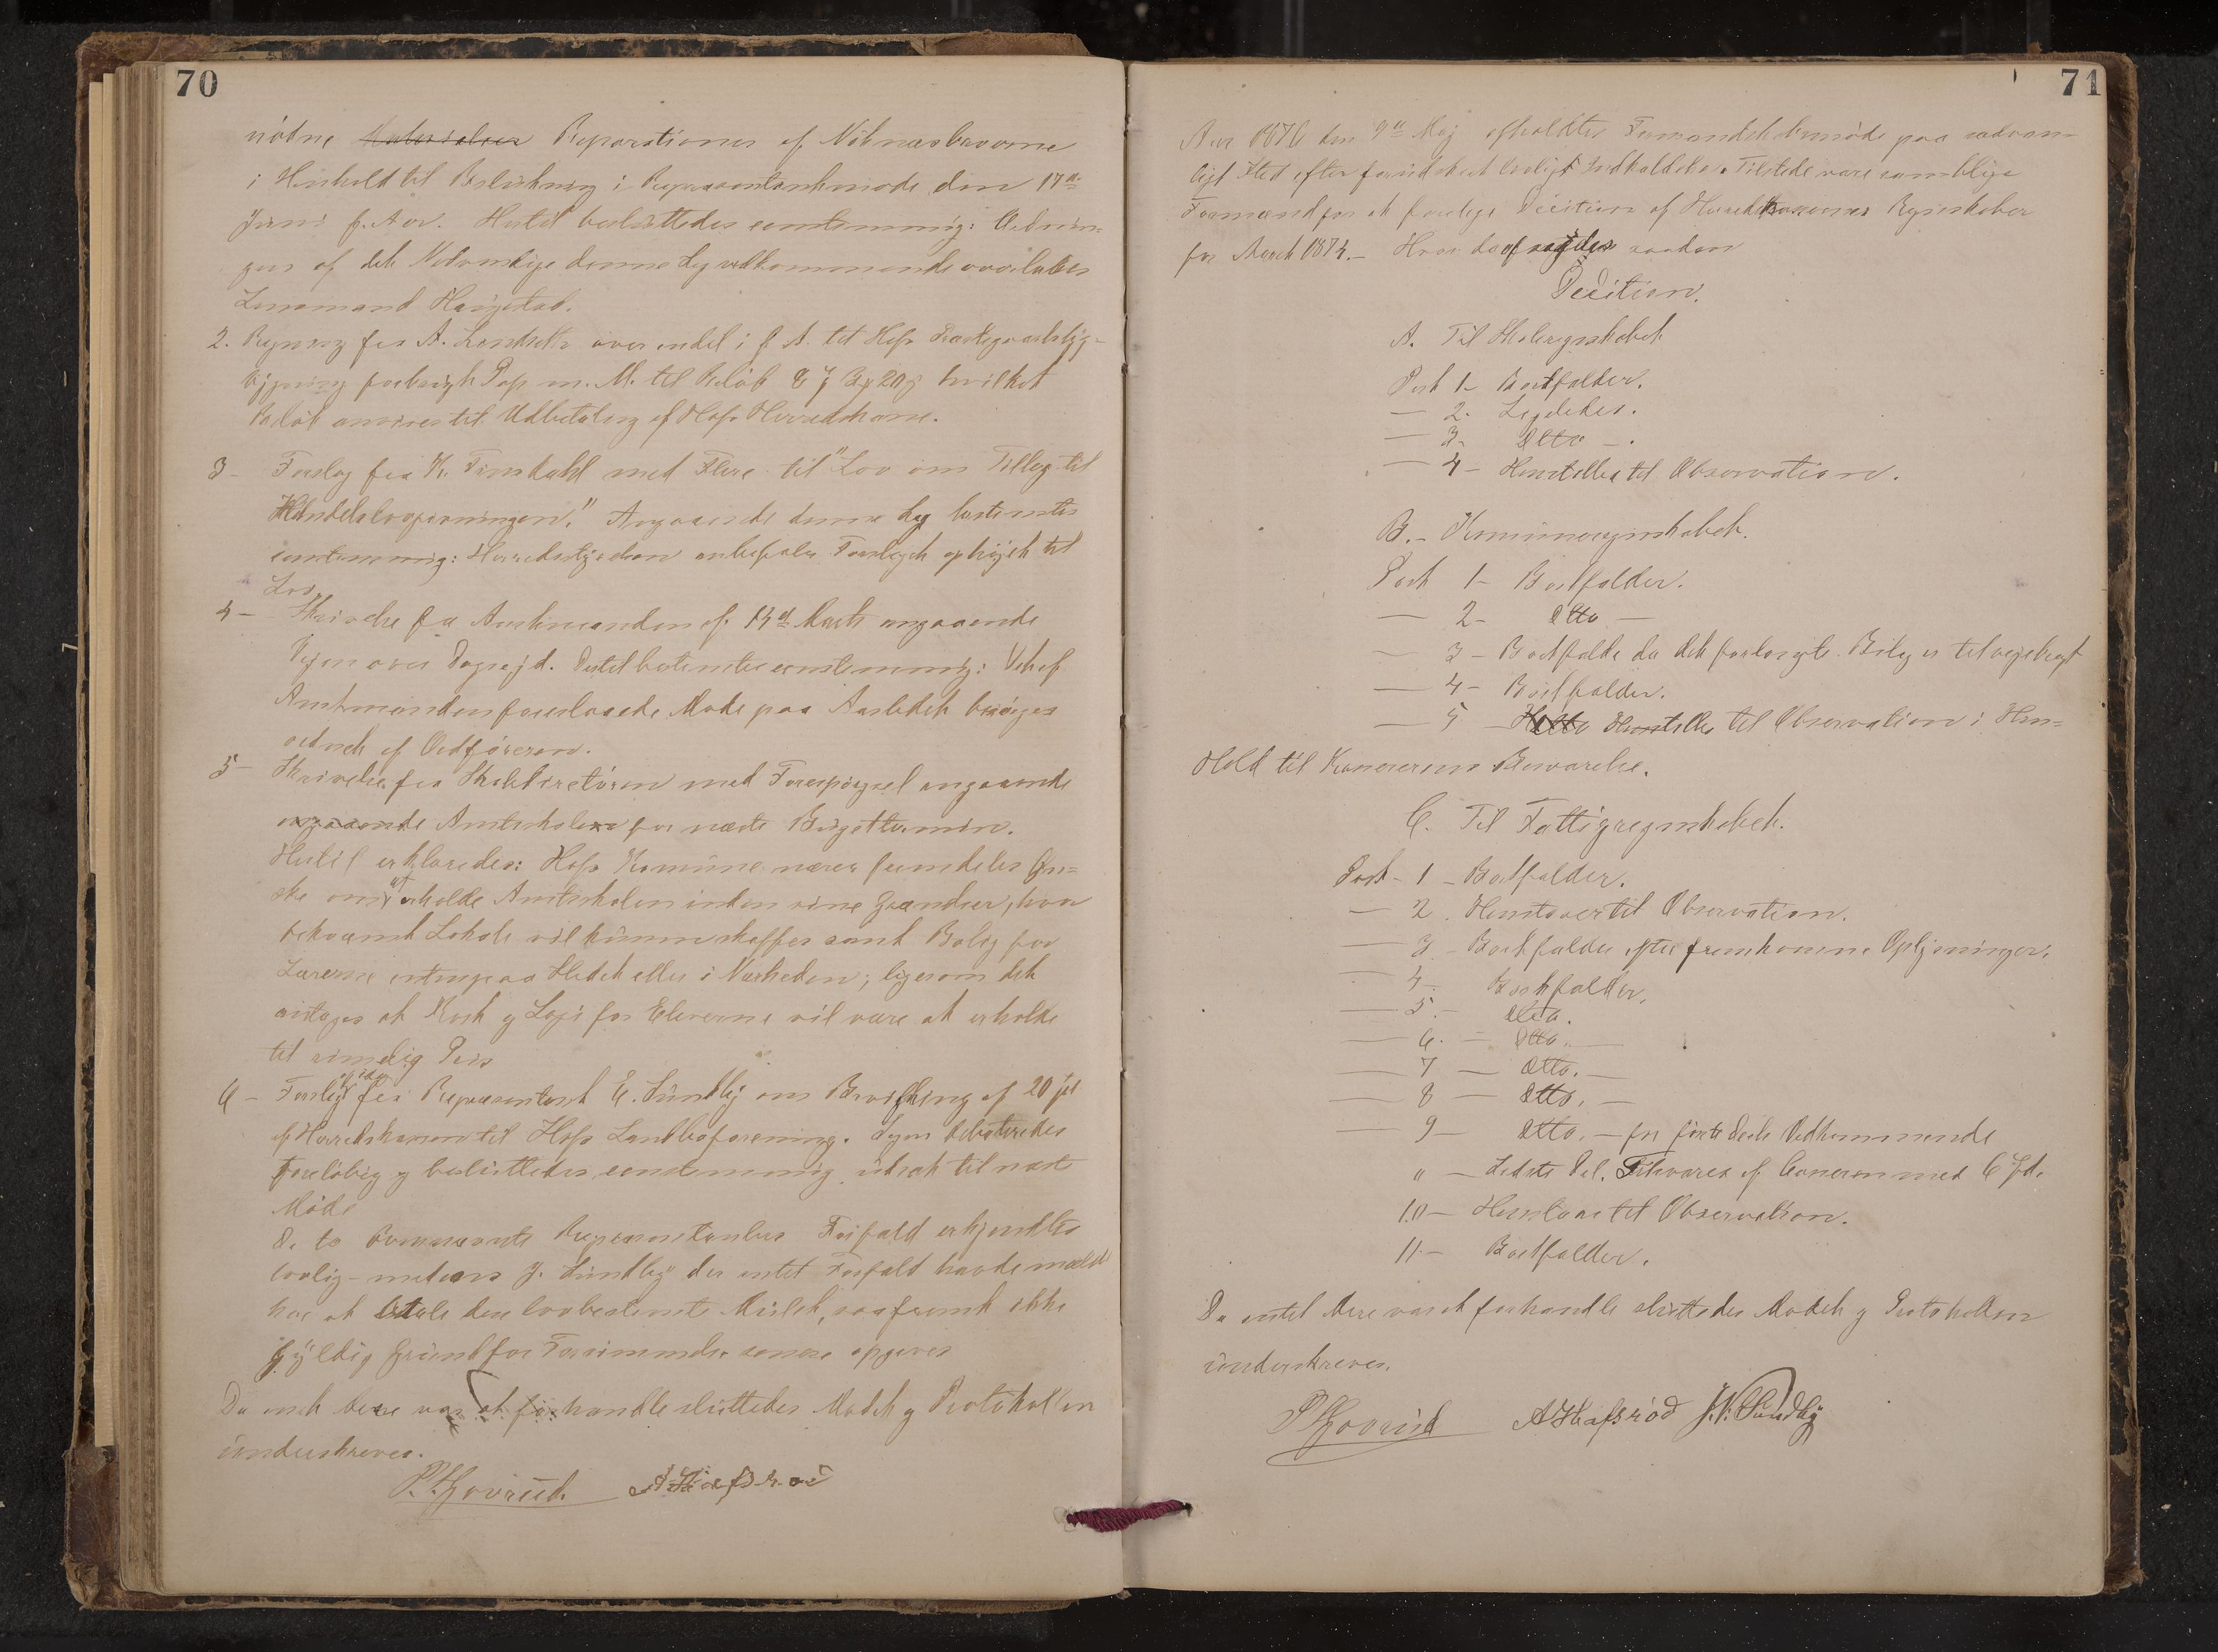 70
nödne Materialier Reparationer af Nötnæsbroerne
i Henhold til Beslutning i Repræsentantmöde den 17de
Juni f. Aar. Hertil besluttedes eenstemmig: Ordnin-
gen af det Nödvendige denne Sag vedkommende overlades
Lensmand Haugestad.
2. Regning fra A. over endel i f A. til Hofs
forbrugt Pap m. M. til Beløb 8 20 hvilket
Beløb anvises til Udbetaling af Hofs Herredskasse.
3 - Forslag fra K. med Flere til "Lov om Tillæg til
Handelslovgivningen." Angaaende denne Sag bestemtes
eenstemmig: Herredsstyrelsen anbefaler Forslaget ophöjet til
Lov.
4 - Skrivelse fra Amtmanden af 13de Marts angaaende
Vejen over Dertil bestemtes eenstemmig: Det af
Amtmanden foreslaaede Möde paa Aastedet
af Ordföreren.
5 - Skrivelse fra Skoledirektören med Forespörgsel angaaende
angaaende Amtsskolen for næste Budgettermin.
Hertil erklæredes: Hofs Komune nærer fremdeles Øn-
ske om at erholde Amtsskolen inden sine Grændser, hvor
bekvemt Lokale vil kunne skaffes samt Bolig for
Lærerne enten paa Stedet eller i Nærheden; ligesom det
antages at Kost og Logi for Eleverne vil være at erholde
til rimelig Pris
6 - Forslag fra Repræsentant E. Sundby om Bevilgning af 20 Spd
af Herredskassen til Hofs Landboforening. Sagen debatteredes
foreløbig og besluttedes eenstemmig udsat til næste
Möde
De to Repræsentanters Forfald erkjendtes
lovlig - medens J. Sundby der intet Forfald havde meldt
har at betale den lovbestemte Mulkt, saafremt ikke
gyldig Grund for Forsömmelsen senere opgives
Da intet mere var at forhandle sluttedes Mödet og Protokollen
underskreves.
P. Hovrud. A Hafsröd
71
Aar 1876 den 9de Maj afholdtes Formandskabsmöde paa sædvan-
ligt Sted efter forudskeet lovligt Indkaldelse. Tilstede vare samtlige
Formænd for at foretage Decition af Herredskassernes Regnskaber
for Aaret 1874. - Hvor da afsagdes saadan
Decition.
A. Til Skoleregnskabet
Post 1 - Bortfalder.
— 2. Ligeledes.
— 3. dtto - .
— 4 - Henstilles til Observation.
B. - Komuneregnskabet.
Post 1 - Bortfalder.
— 2 - dtto —
— 3 - Bortfalder da det forlangte Bilag er tilvejebragt
— 4 - Bortfalder.
— 5 - dtto Henstilles til Observation i Hen-
Hold til Kasserens Besvarelse.
C. Til Fattigregnskabet.
Post - 1 - Bortfalder.
— 2. Henstaaer til Observation.
— 3 - Bortfalder efter fremkomne Oplysninger.
— 4 - Bortfalder.
— 5. - dtto.
— 6. — dtto. —
— 7 — dtto. —
— 8 — dtto. —
— 9 — dtto. - for förste Deels Vedkommende
" — Sidste Del. Tilsvares af Casseren med 6
10 — Henstaar til Observation.
11 - Bortfalder.
Da intet Mere var at forhandle sluttedes Mödet og Protokollen
underskreves.
P Hovrud A Hafsröd J. N. Sundby